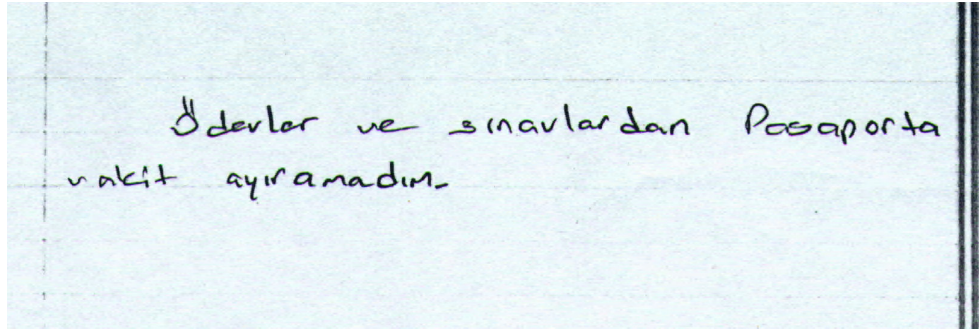 Ödevler ve sınavlardan Pasaporta
vakit ayıramadım.